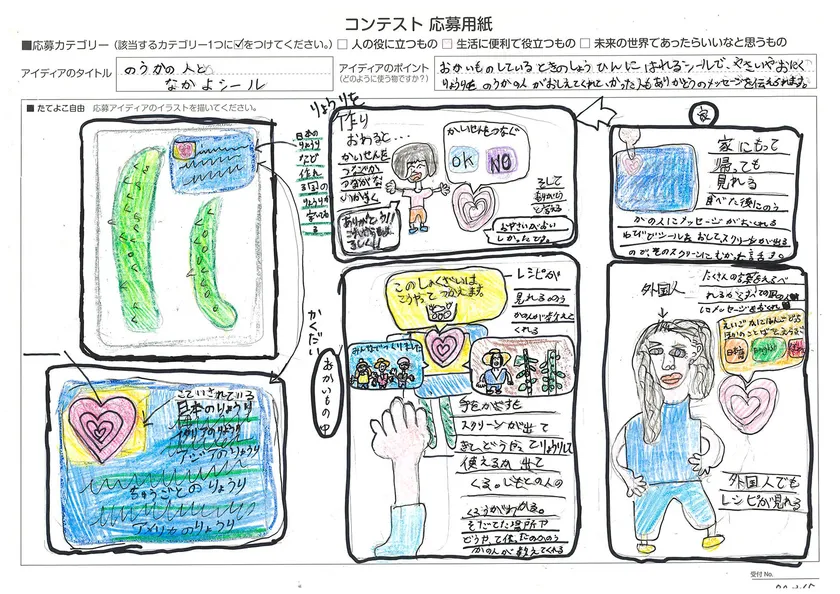 コンテスト 応募用紙
■応募カテゴリー（該当するカテゴリー1つに☑をつけてください。）□ 人の役に立つもの □ 生活に便利で役立つもの □ 未来の世界であったらいいなと思うもの
アイディアのタイトル
のうかの人と
なかよシール
アイディアのポイント
（どのように使う物ですか？）
おかいものしているときのしょうひんにはれるシールで、やさいやおにく
りょうりをのうかの人がおしえてくれて
ありがとうのメッセージを伝えられます。
■ たてよこ自由 応募アイディアのイラストを描いてください。
日本の
りょうり
など
作れ
国の
りょうりが
書いてあ
る
かくだい
こていされている
日本のりょうり
イタリアのりょうり
アジアのりょうり
ちゅうごくのりょうり
アメリカのりょうり
りょうりを
作り
おわると…
かいせんを
つなぐか
つながな
いかきく
ありがとう!!
かいせんをつなぐ
OK
NO
そして
ありがとう
おやさいがおい
しかったです。
おかいもの中
このしょくざいは
こうやってつかえます。
レシピが
見れるのう
かの人が教えて
くれる
みんなでつくりました
手をかざすと
スクリーンが出て
きて、どうやってりょうりして
使えるか出て
くる。しごとの人の
くろうがわかる。
そだてた場所や
どうやって作ったかのう
かの人が教えてくれる
家
家にもって
帰っても
見れる
食べた後にのう
かの人にメッセージがおくれる
ゆびでシールをおして、スクリーンが出る
ので、そのスクリーンにむかって話す。
外国人
日本語
English
外国人でも
レシピが見れる
受付 No.